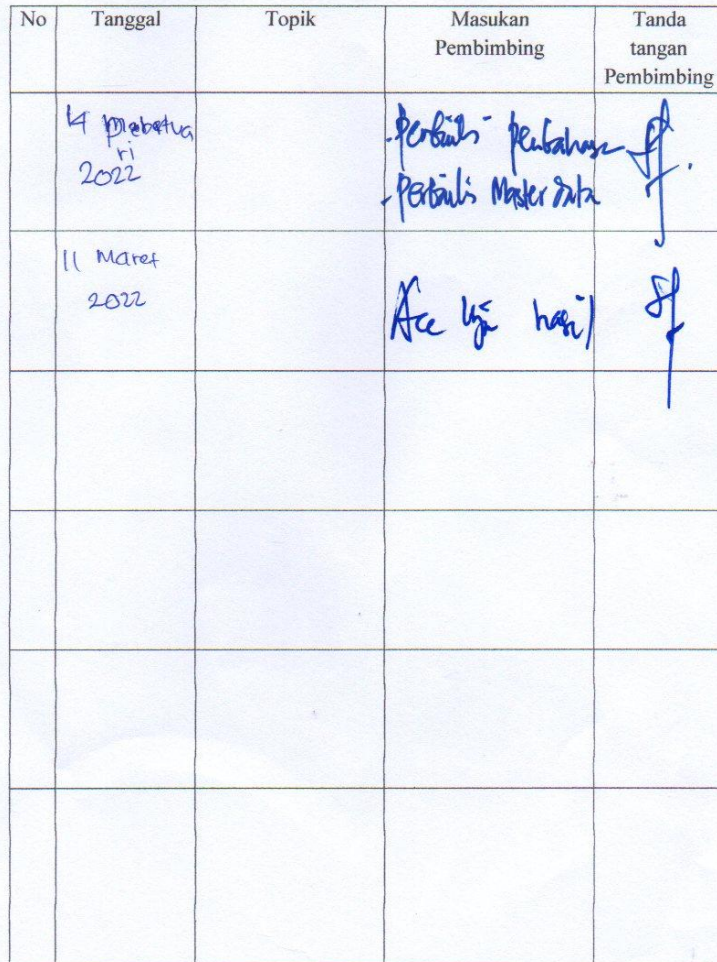 No Tanggal Topik Masukan Tanda
Pembimbing tangan
Pembimbing
14 Februa
ri
2022
- Perbaiki pembahasan
- Perbaiki Master data
11 Maret
2022
Acc Uji hasil